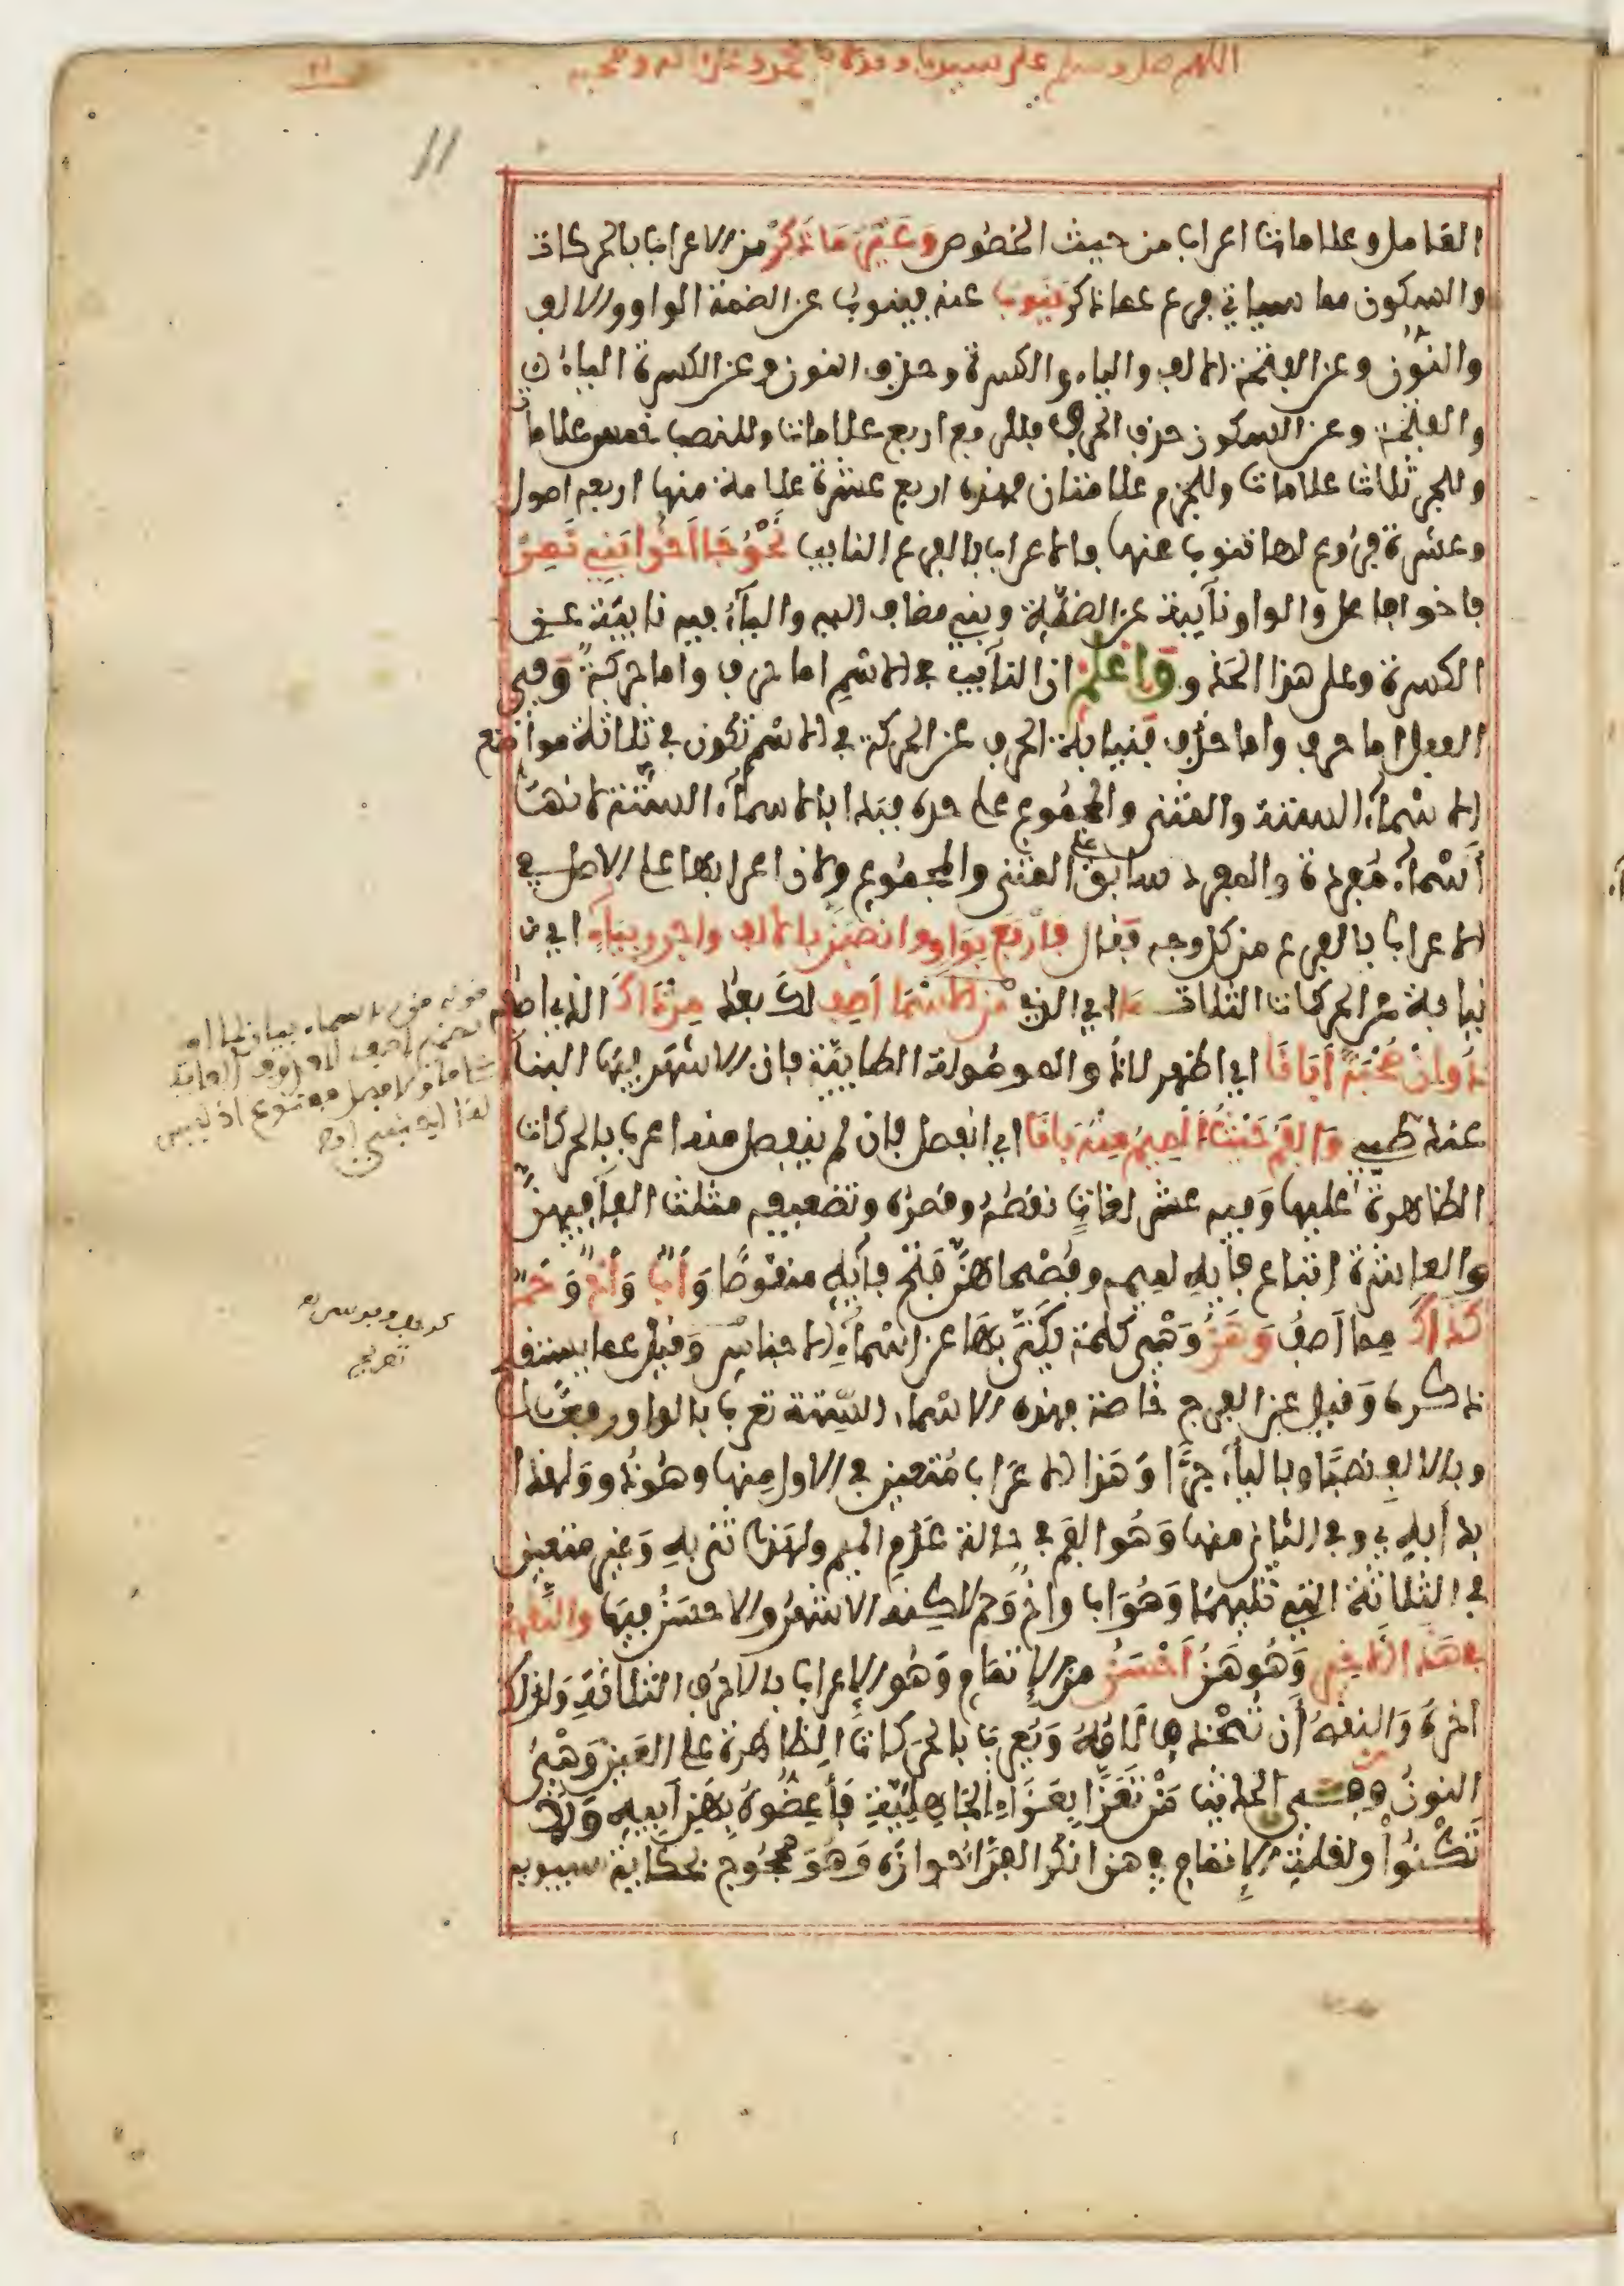 اللهم صل وسلم على سيدنا ومولانا محمد وعلى اله وصحبه
11
العامل وعلامات اعراب من حيث الخصوص وَغَيْرُ مَا ذُكِرْ من الاعراب بالحركات
والسكون مما سياتي فرع عما ذكر يَنُوبُ عنه فينوب عن الضمة الواو والالف
والنون وعن الفتحة الالف والياء والكسرة وحذف النون وعن الكسرة الياء
والفتحة وعن السكون حذف الحرف فللرفع اربع علامات وللنصب خمس علامات
وللجر ثلاث علامات وللجزم علامتان فهذه اربع عشرة علامة منها اربعة اصول
وعشرة فروع لها تنوب عنها والاعراب بالفرع النايب نَحْوُ جَا أَخُو بَنِي نَمِرْ
فاخو فاعل والواو نآيبة عن الضمة وبني مضاف اليه واليآء فيه نايبة عن
الكسرة وعلى هذا الحذو وَاعْلَم ان النآيب في الاسم اما حرف واما حركة وفي
الفعل اما حرف واما حذف فنيابة الحرف عن الحركة في الاسم تكون في ثلاثة مواضع
الاسمآء الستة والمثنى والمجموع على حده فبدا بالاسمآء الستة لانها
أسمآء مفردة والمفرد سابق على المثنى والمجموع ولان اعرابها على الاصل في
الاعراب بالفرع من كل وجه فقال فَارْفَعْ بِوَاوٍ وانْصِبَنَّ بالالف واجرر بِيَآءٍ اي
نيابة عن الحركات الثلاث مَا اي الذي مِنَ الاسْمَا أَصِف لك بعد مِنْ ذَاكَ الذي اصفه
ذُو انْ صُحْبَةً أَبَانَا اي اظهر لاذو الموصولة الطايية فان الاشهر فيها البنآ
عند طيىء وَالْفَمُ حَيْثُ الْمِيمُ مِنْهُ بَانَا اي انفصل فان لم ينفصل منه اعرب بالحركات
الظاهرة عليها وفيه عشر لغات نقصه وقصره وتضعيفه مثلث الفآ فيهن
والعاشرة اتباع فآيه لميمه وفصحاهن فتح فآيه منقوصا وَأَبٌ وَأَخٌ وَ حَمٌ
كَذَاكَ مما أصف وَ هَنُ وَهْي كلمة يكنى بها عن اسمآء الاجناس وقيل عما يستقبح
ذكره وقيل عن الفرج خاصة فهذه الاسماء الستة تعرب بالواو رفعًا
وبالالف نصبًا وباليآء جرًّا وَهَذا الاعراب متعين في الاول منها وهو ذو ولهذا
بدأ به وفي الثاني منها وَهُو الفم في حالة عدم الميم ولهذا ثنى به وغير متعين
في الثلاثة التي تليهما وهو اب واخ وحم لكنه الاشهر والاحسن فيها وَالنَّقْصُ
فِي هَذَا الأَخِير وَهُو هَنُ أَحْسَنُ من الإتمام وَهُو الإعراب بالاحرف الثلاثة ولذلك
اخره وَالنقص أن تحذف لامُهُ وَيُعرب بالحركات الظاهرة على العين وَهْيَ
النون وفي الحديث مَنْ تَعَزَّا بِعَزَاءِ الجَاهِلِيَّةِ فَأَعِضُّوهُ بِهَنِ أَبِيهِ وَلا
تَكْنُوا ولقلة الإتمام في هن انكر الفرَّا جوازه وَهُوَ محجوج بحكاية سيبويه